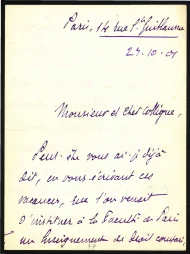 Paris, 14 rue St Guillaume
29-10-01
Monsieur et cher collègue,
Peut-être vous ai-je déjà
dit, en vous écrivant ces
vacances, que l'on venait
d'instituer à la Faculté de Paris
un Enseignement de droit comparé,